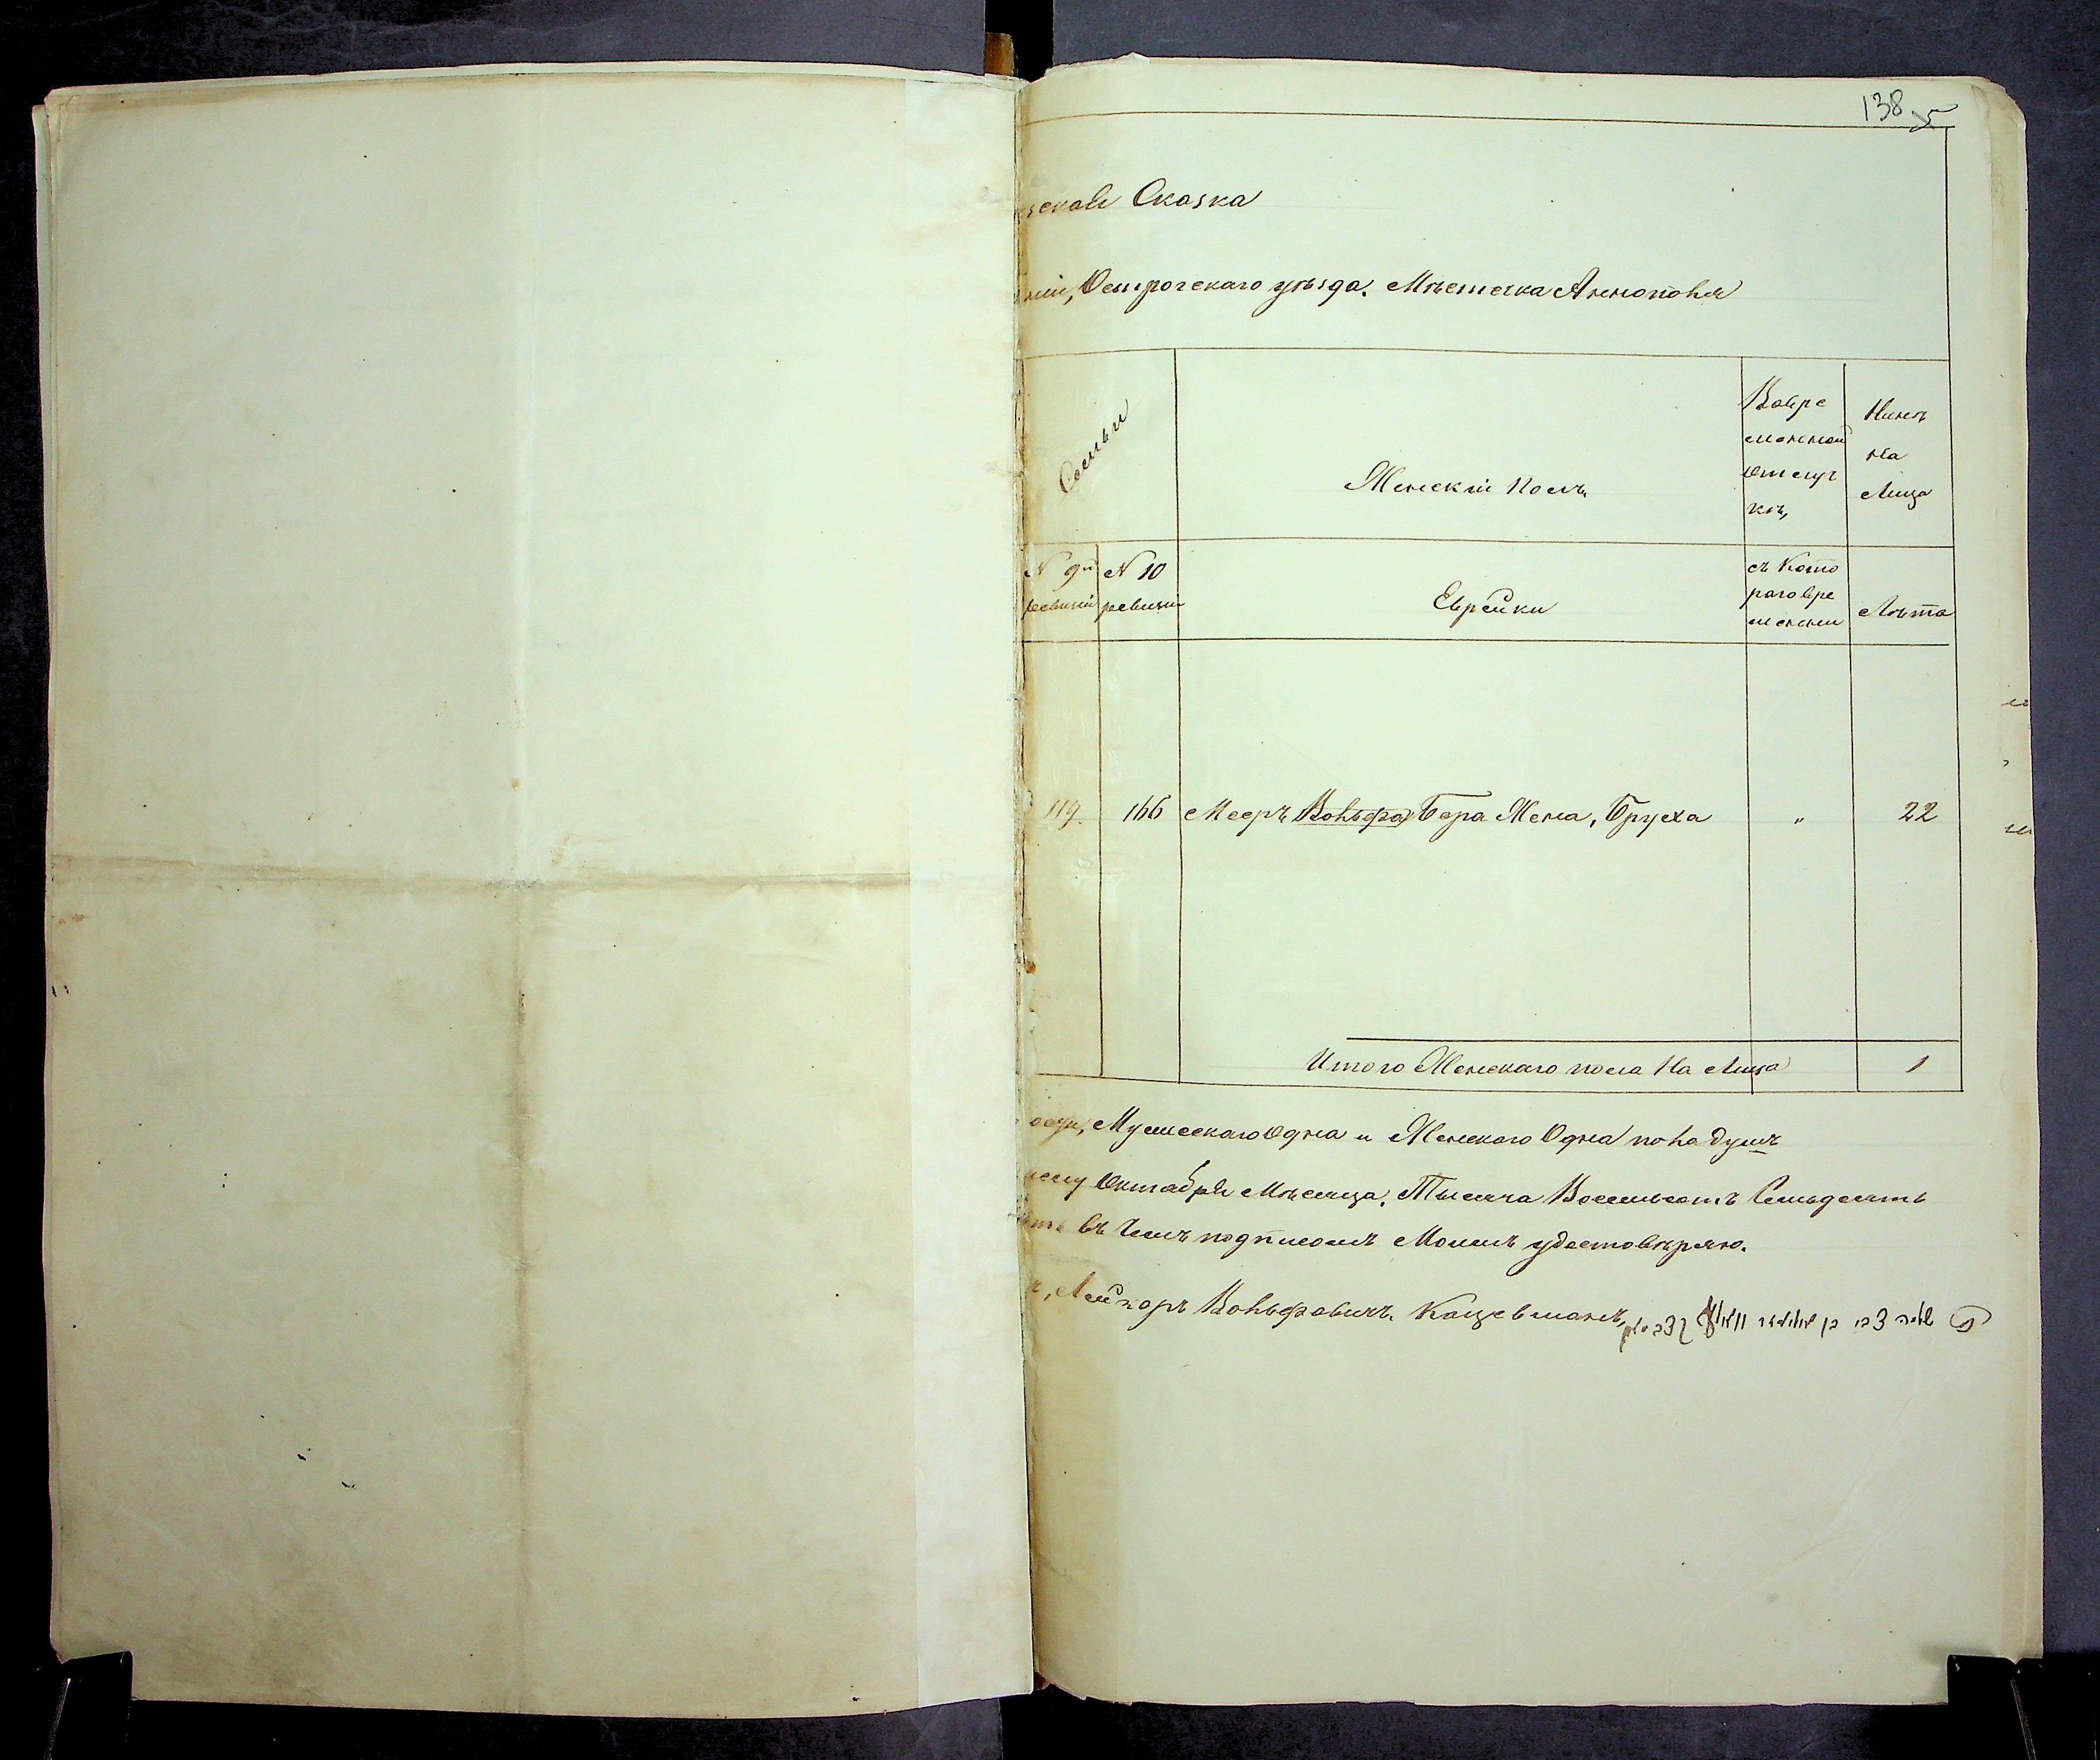 138
зская Сказка
ніи, Острогскаго уѣзда. Мѣстечка Аннополя
Семьи
Женскій Полъ
Вовре
менной
Отлуч
кѣ,
Нынѣ
На
Лицо
N 9й
ревизіи
N 10
ревизіи
Еврейки
съ Кото
раго вре
мении
Лѣта
119. 166 Мееръ Вольфа Бера Жена, Бруха " 22
Итого Женскаго пола На Лицо 1
Мужескаго Одна и Женскаго Одна пола душъ
Октября Мѣсяца, Тысяча Восемьсотъ Семьдесятъ
въ Чемъ подписомъ Моимъ удостовѣряю.
Лейзоръ Вольфовичъ Кацевманъ,